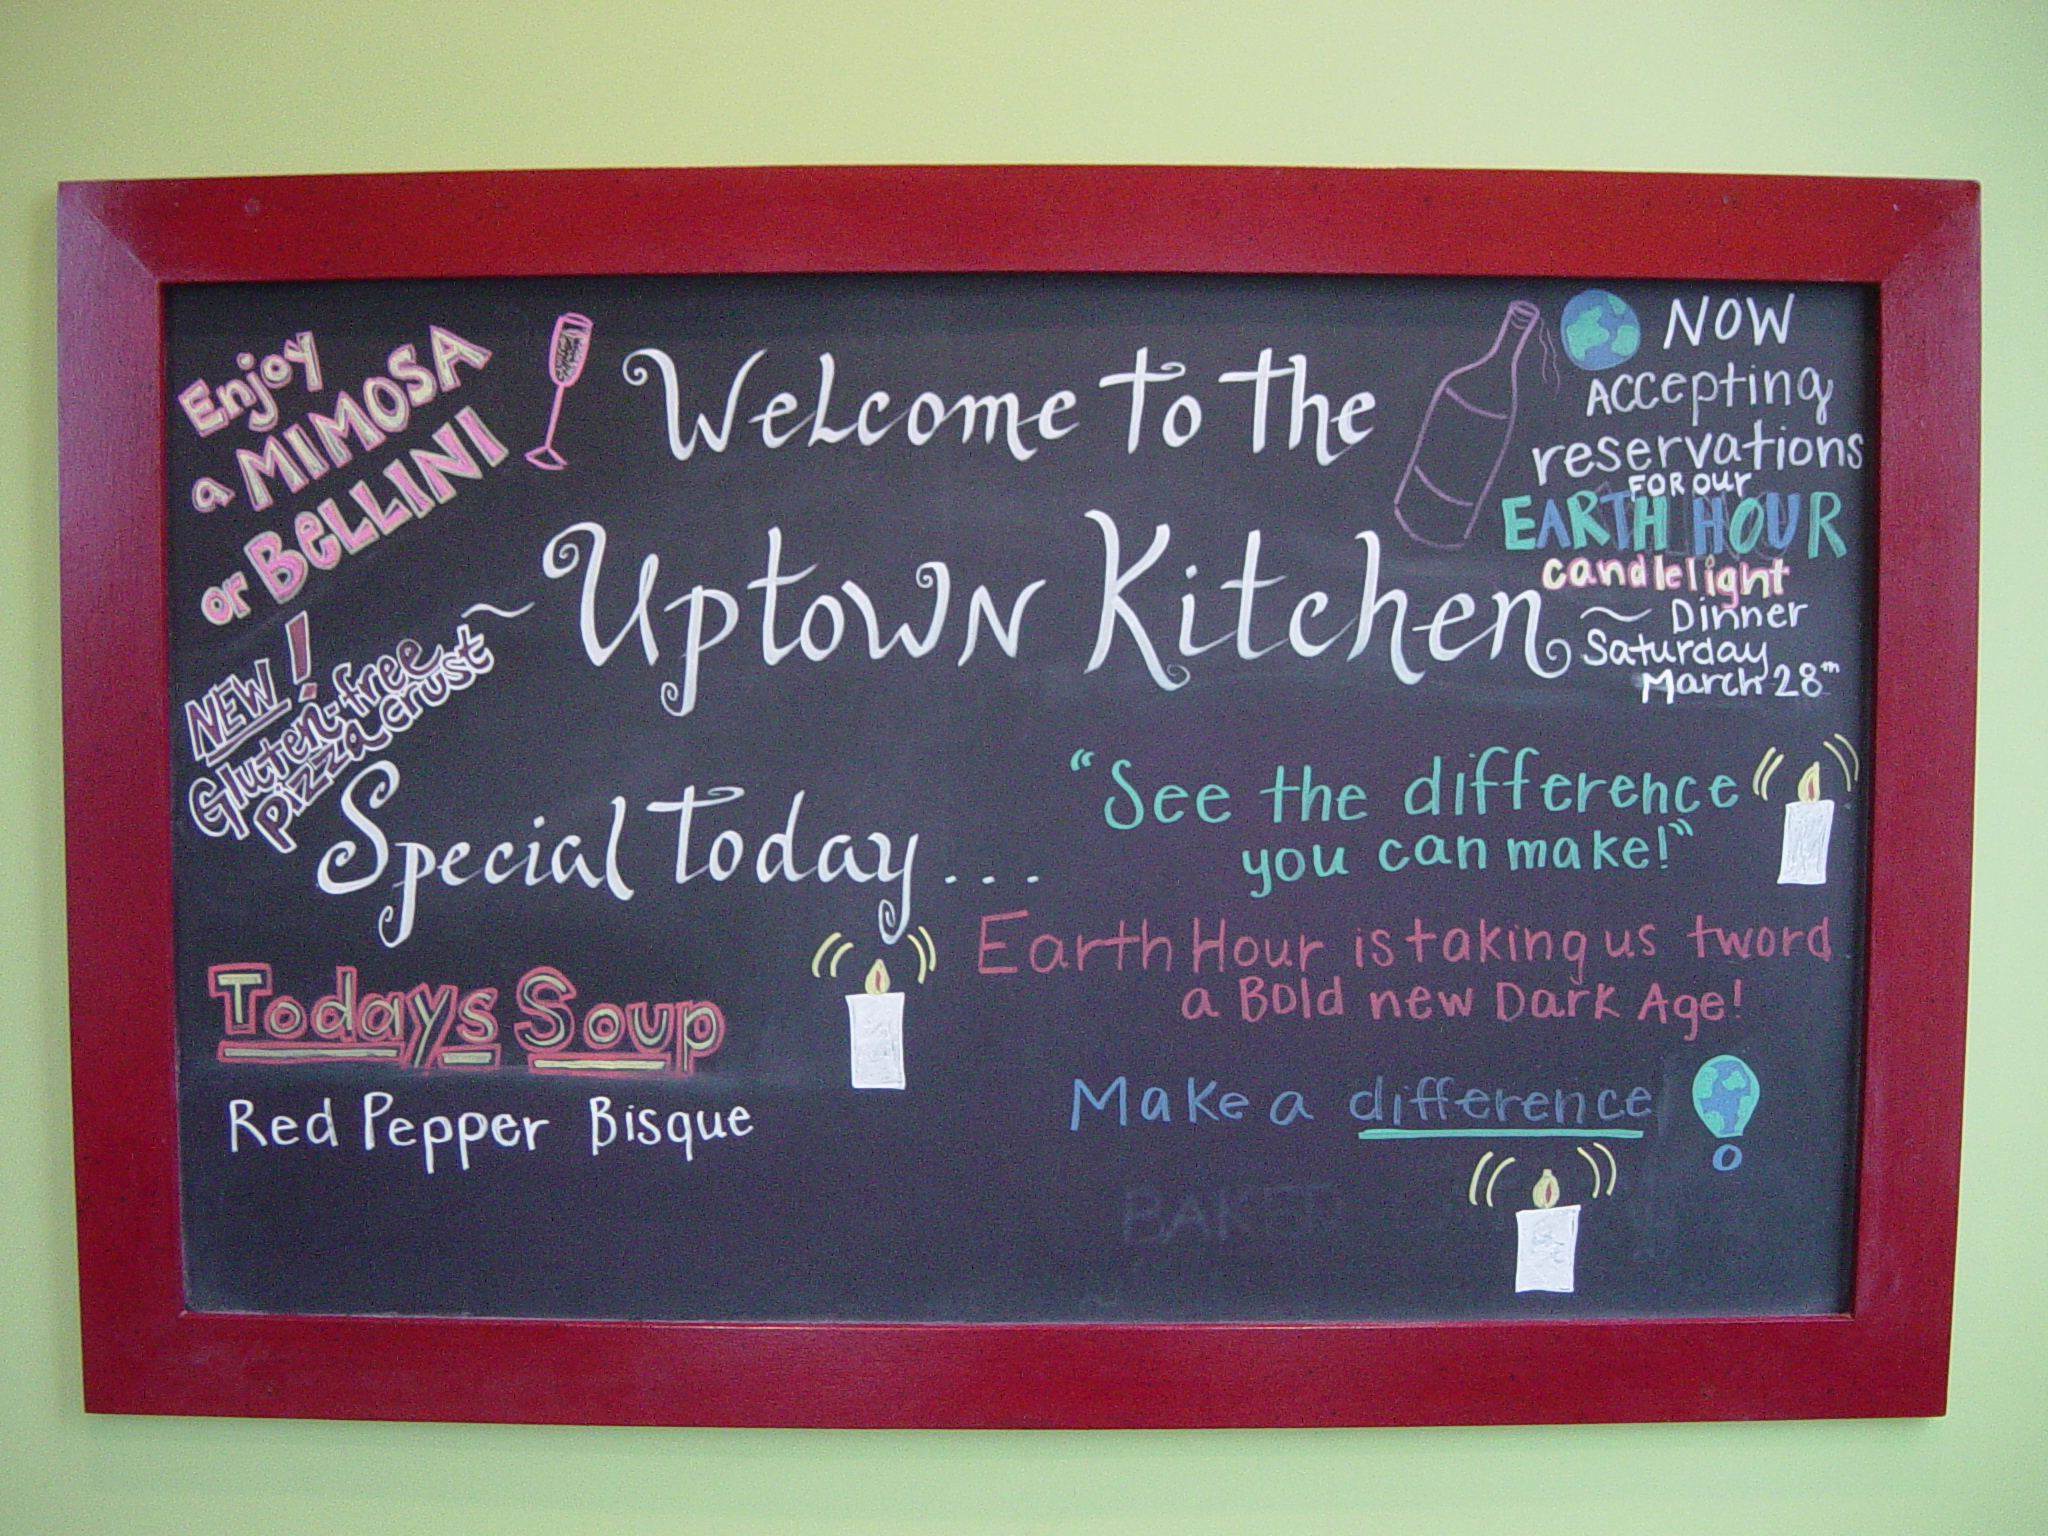 Enjoy
a MIMOSA
or BELLINI
Welcome to the
~ Uptown Kitchen
NOW
Accepting
reservations
FOR our
EARTH HOUR
candlelight
~ Dinner
Saturday
March 28th
NEW!
Gluten-free
pizza crust
Special Today...
"See the difference
you can make!"
Earth Hour is taking us tword
a Bold new Dark Age!
Todays Soup
Red Pepper Bisque
Make a difference
BAKED